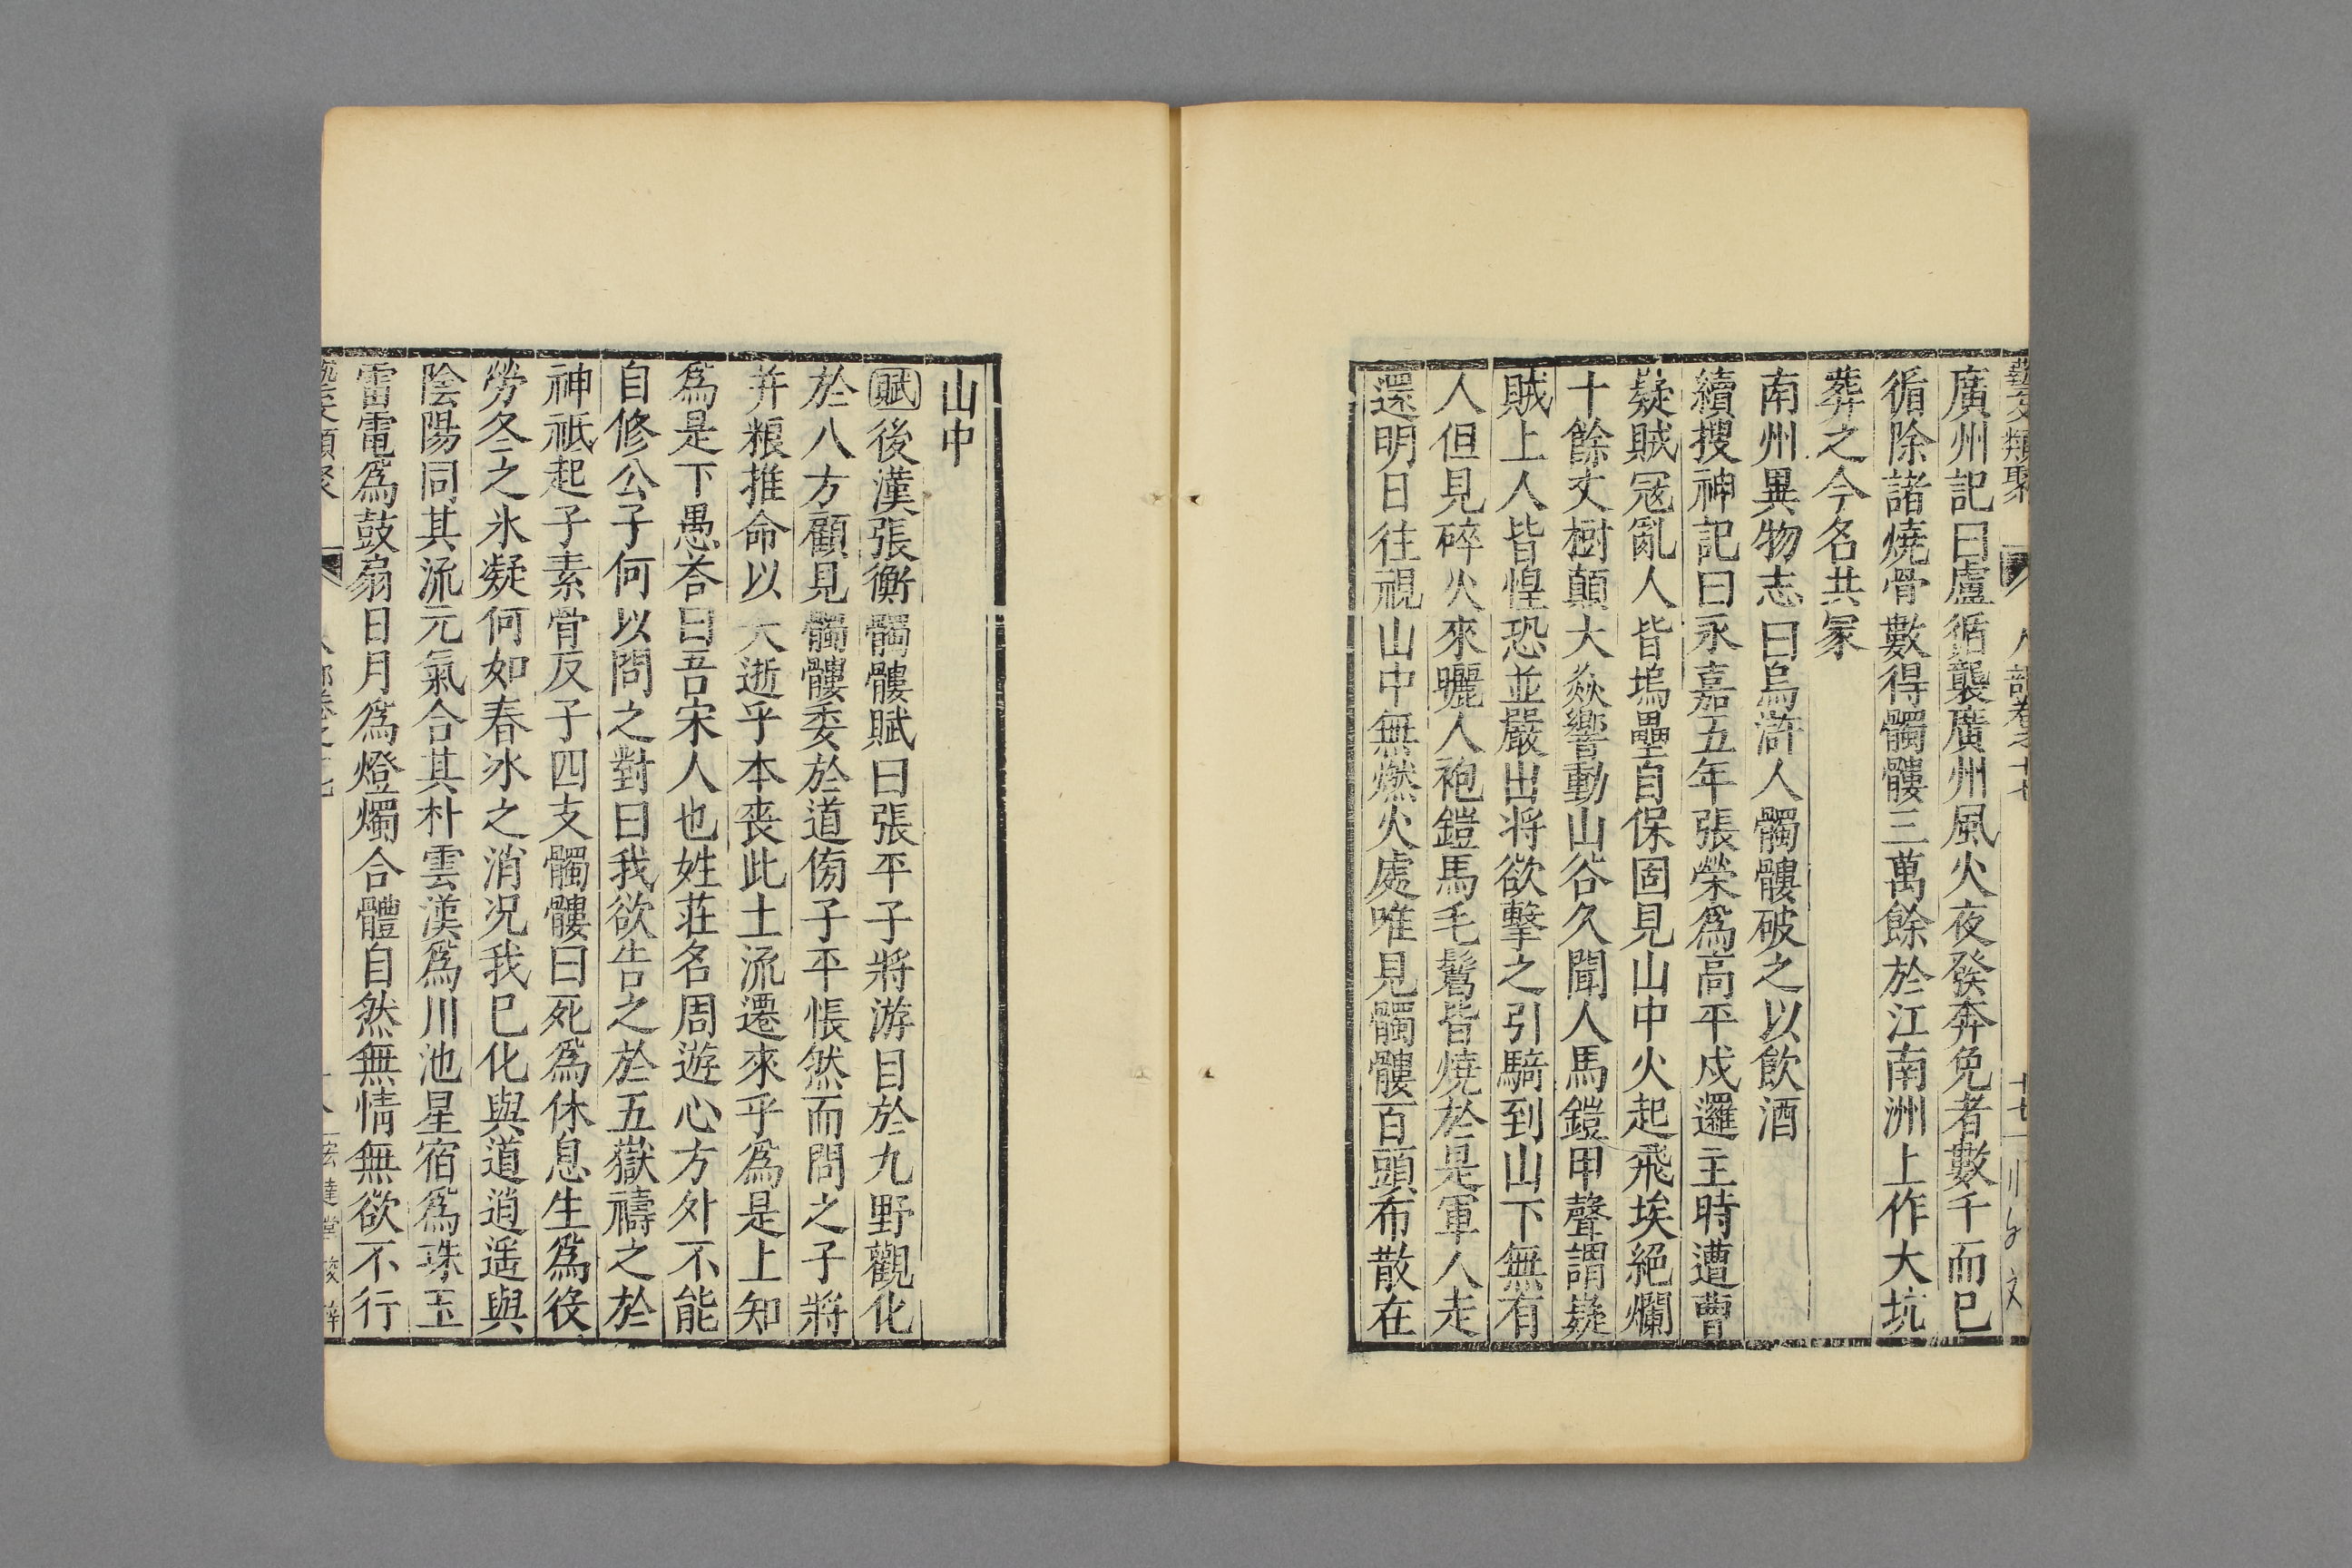 藝文類聚 人部卷之十七 十七
廣州記曰盧循襲廣州風火夜發奔免者數千而巳
循除諸燒骨數得髑髏三萬餘於江南洲上作大坑
葬之今名共冢
南州異物志曰烏滸人髑髏破之以飲酒
續搜神記曰永嘉五年張榮爲高平戍邏主時遭曹
嶷賊寇亂人皆塢壘自保固見山中火起飛埃絕爛
十餘丈樹顛大焱響動山谷久聞人馬鎧甲聲謂嶷
賊上人皆惶恐並嚴出將欲擊之引騎到山下無有
人但見碎火來曬人袍鎧馬毛鬉皆燒於是軍人走
還明日往視山中無燃火處唯見髑髏百頭布散在
山中
賦後漢張衡髑髏賦曰張平子將游目於九野觀化
於八方顧見髑髏委於道傍子平悵然而問之子將
并粮推命以大逝乎本喪此土流遷來乎爲是上知
爲是下愚荅曰吾宋人也姓莊名周遊心方外不能
自修公子何以問之對曰我欲告之於五嶽禱之於
神祇起子素骨反子四支髑髏曰死爲休息生爲役
勞冬之氷凝何如春冰之消况我巳化與道逍遥與
陰陽同其流元氣合其朴雲漢爲川池星宿爲珠玉
雷電爲鼓扇日月爲燈燭合體自然無情無欲不行